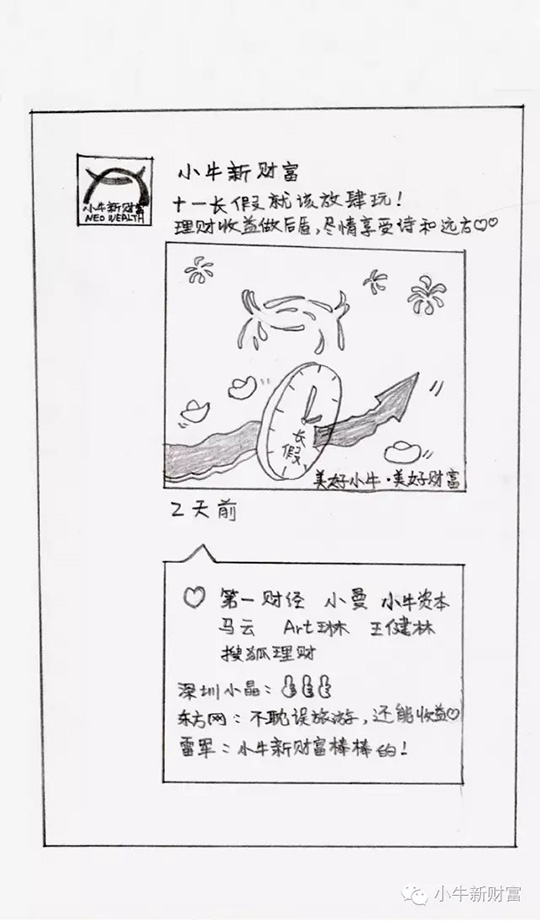 小牛新财富
NEO WEALTH
小牛新财富
十一长假就该放肆玩!
理财收益做后盾,尽情享受诗和远方♡♡
长假
美好小牛·美好财富
2天前
♡ 第一财经 小曼 小牛资本
马云 Art琳 王健林
搜狐理财
深圳小晶:
东方网:不耽误旅游,还能收益♡
雷军:小牛新财富棒棒的!
小牛新财富